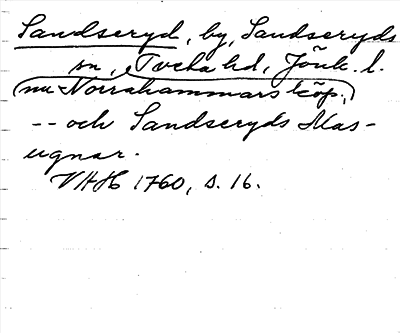 Sandseryd, by, Sandseryds
sn, Tveta hd, Jönk. l.
(nu Norrahammars köp.)
-- och Sandseryds Mas-
ugnar.
VHH 1760, s. 16.